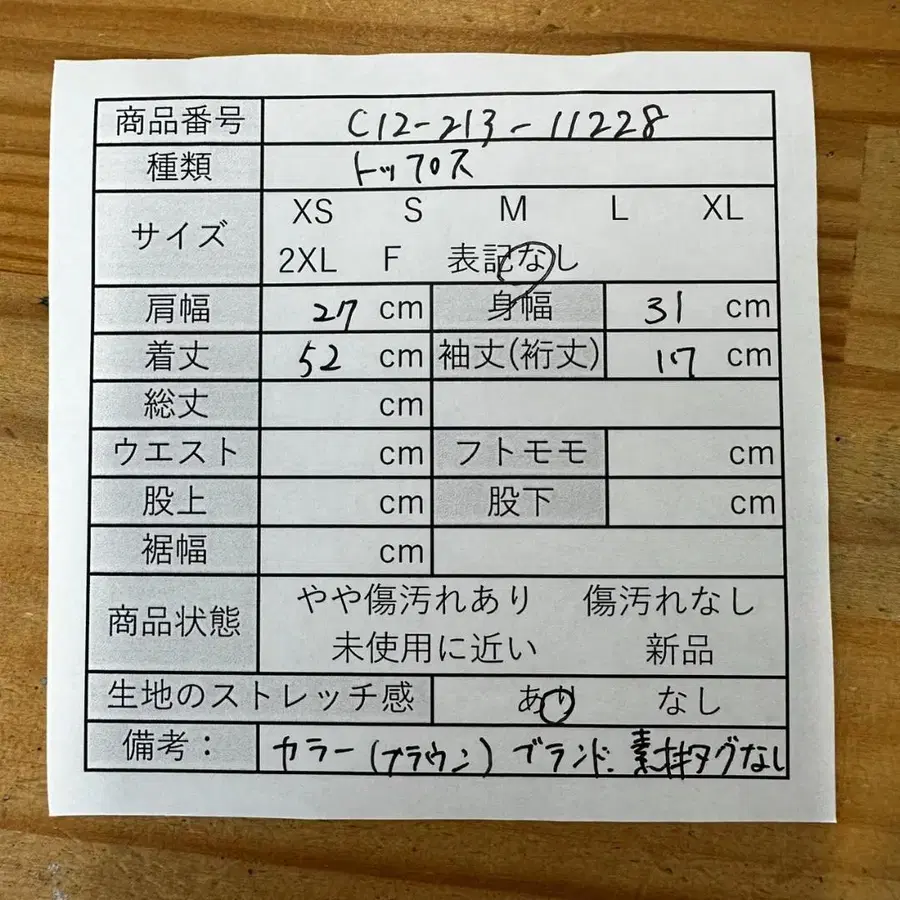 商品番号 C12-213-11228
種類 トップス
サイズ XS S M L XL
2XL F 表記なし
肩幅 27 cm 身幅 31 cm
着丈 52 cm 袖丈(裄丈) 17 cm
総丈 cm
ウエスト cm フトモモ cm
股上 cm 股下 cm
裾幅 cm
商品状態 やや傷汚れあり 傷汚れなし
未使用に近い 新品
生地のストレッチ感 あり なし
備考： カラー(ブラウン) ブランド、素材タグなし